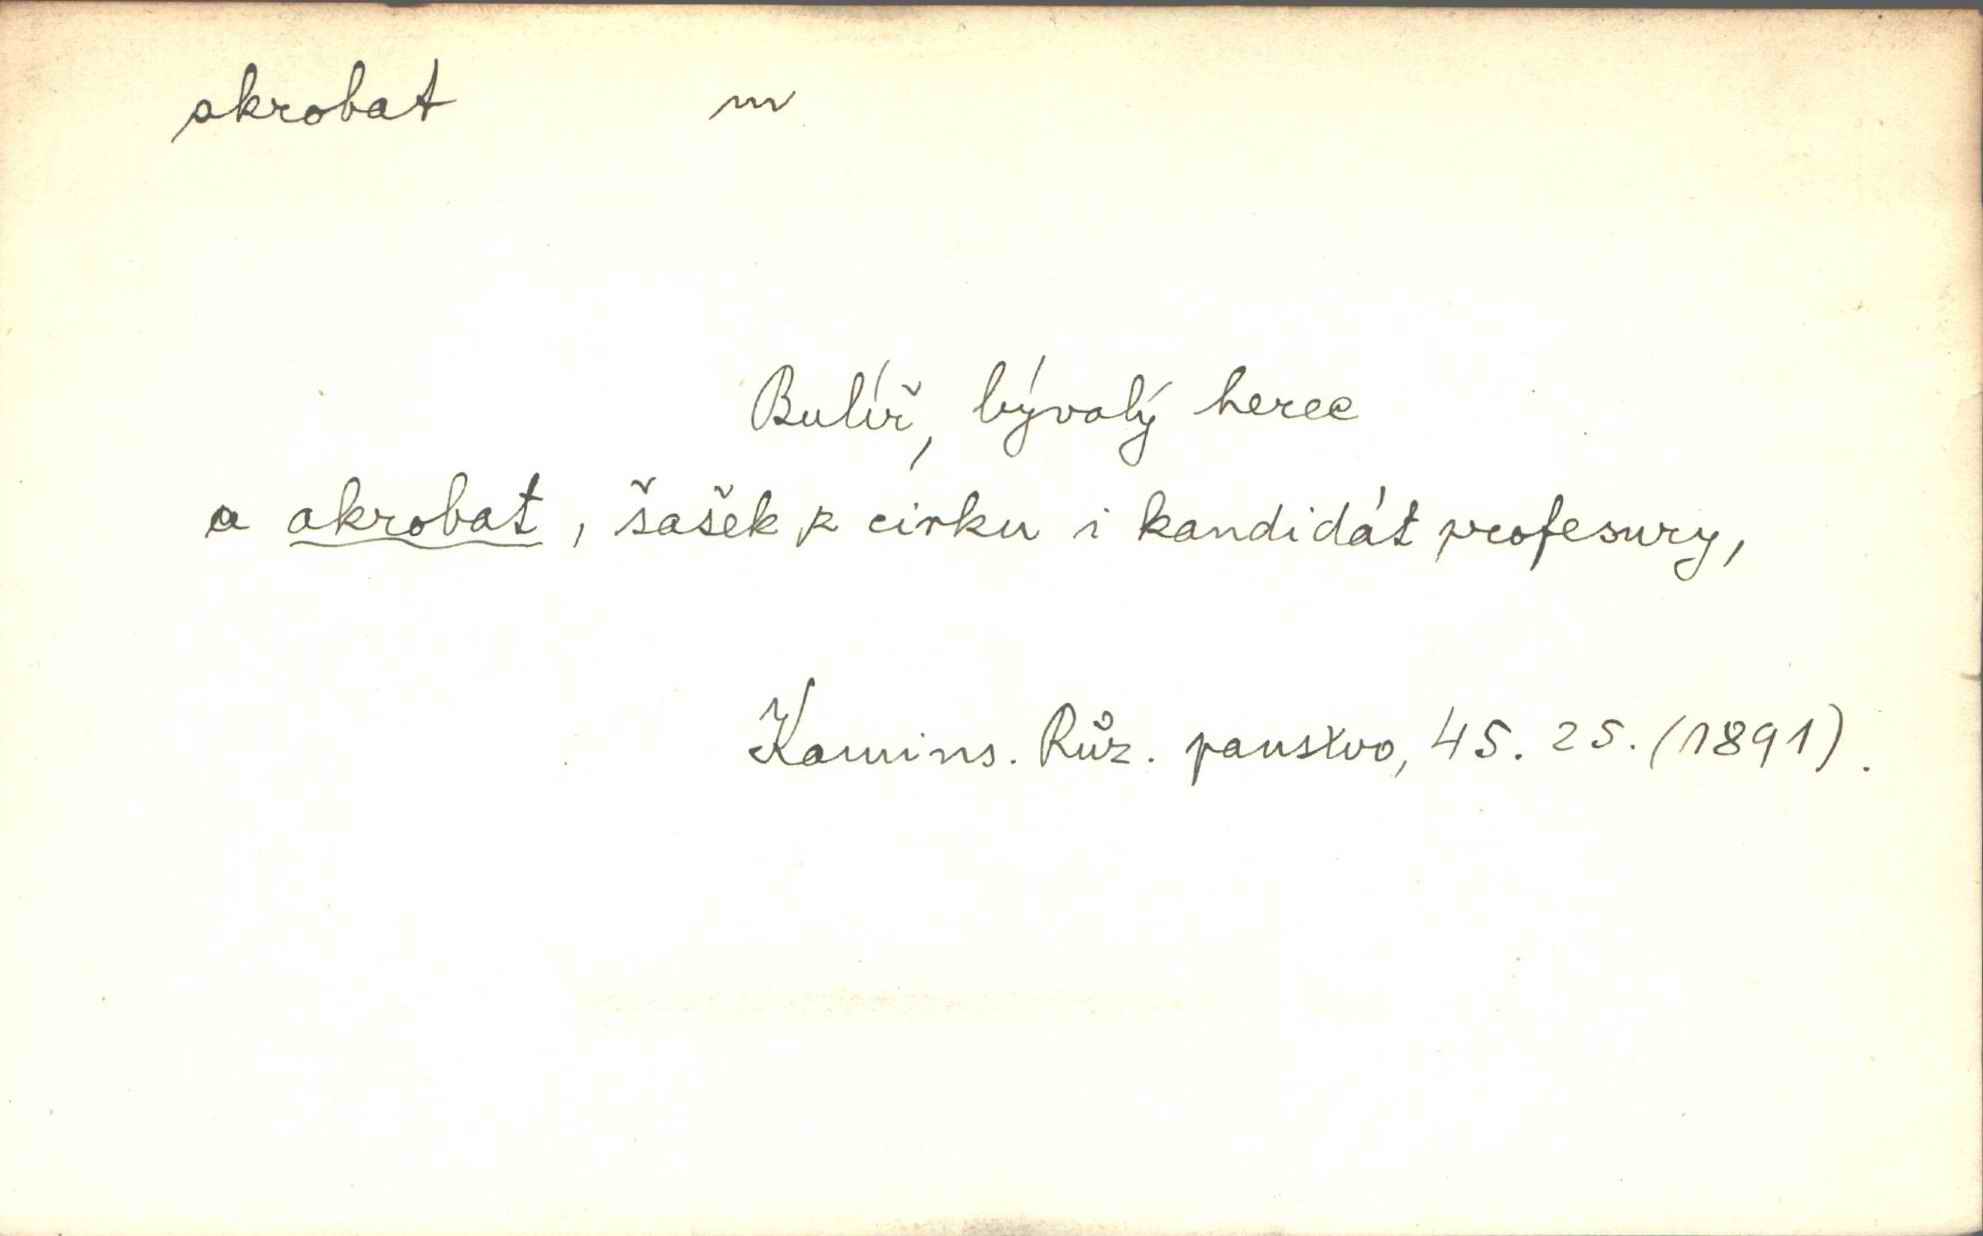 akrobat m
Bulíř, bývalý herec
a akrobat, šašek z cirku i kandidát profesury,
Kamins. Růz. panstvo, 45. 25. (1891).